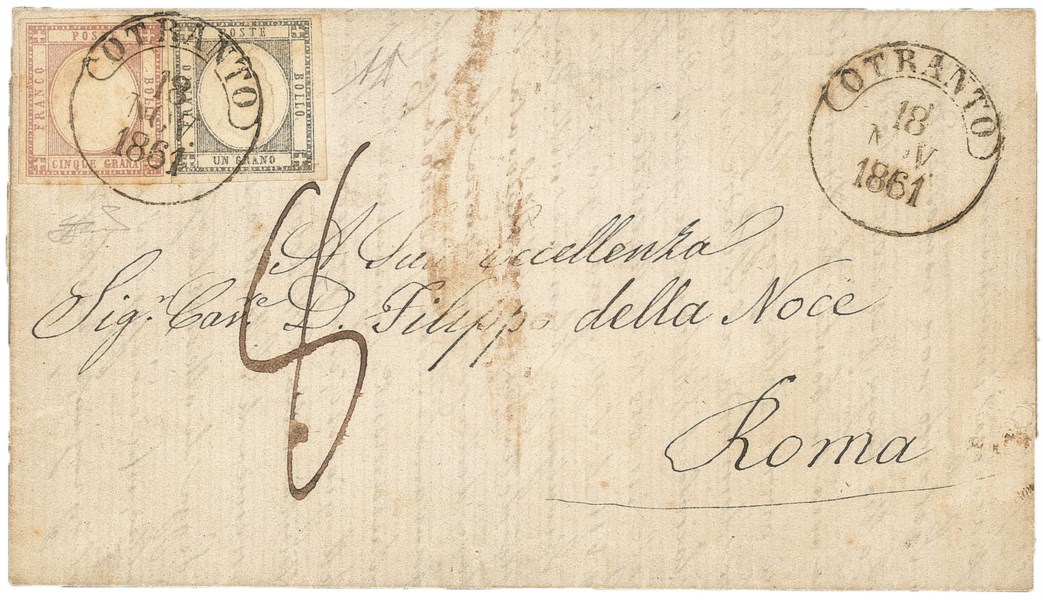 POSTE
FRANCO
BOLLO
CINQUE GRANA
POSTE
FRANCO
BOLLO.
UN GRANO
OTRANTO
18
1861
OTRANTO
18
NOV
1861
A Sua Eccellenza
Sigr. Cavr. D. Filippo della Noce
Roma